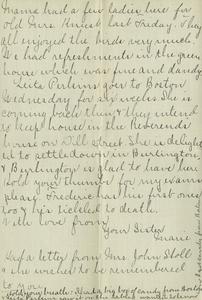 Mama had a few ladies here for
old Mrs. Kniest last Friday. They
all enjoyed the birds very much.
We had refreshments in the green
house which was fine and dandy.
Leita Perkins goes to Boston
Wednesday for six weeks. She is
coming back then & they intend
to keep house in the Reverends
house on Will street. She is delight
ed to settle down in Burlington
& Burlington is glad to have her.
Hold your thumbs for my swans
please. Frederic has his first ones
too & he's tickled to death.
With love from
Your Sister
Marie
Had a letter from Mrs. John Stoll
& she wished to be remembered
to you.